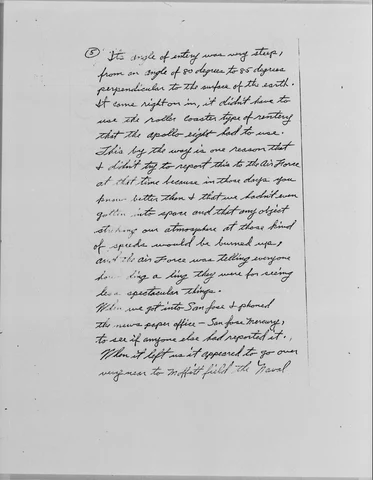 (5) Its angle of entery was very steep,
from an angle of 80 degrees to 85 degrees
perpendicular to the surface of the earth.
It came right on in, it didn't have to
use the roller coaster type of rentery
that the apollo eight had to use.
This by the way is one reason that
I didn't try to report this to the Air Force
at that time because in those days you
know better than I that we hadn't even
gotten into space and that any object
striking our atmosphere at those kind
of speeds would be burned up,
and the Air Force was telling everyone
how a ling they were for seeing
less spectacular things.
When we got into San Jose I phoned
the news paper office - San Jose Mercury,
to see if anyone else had reported it.
When it left us it appeared to go over
very near to Moffitt field the Naval